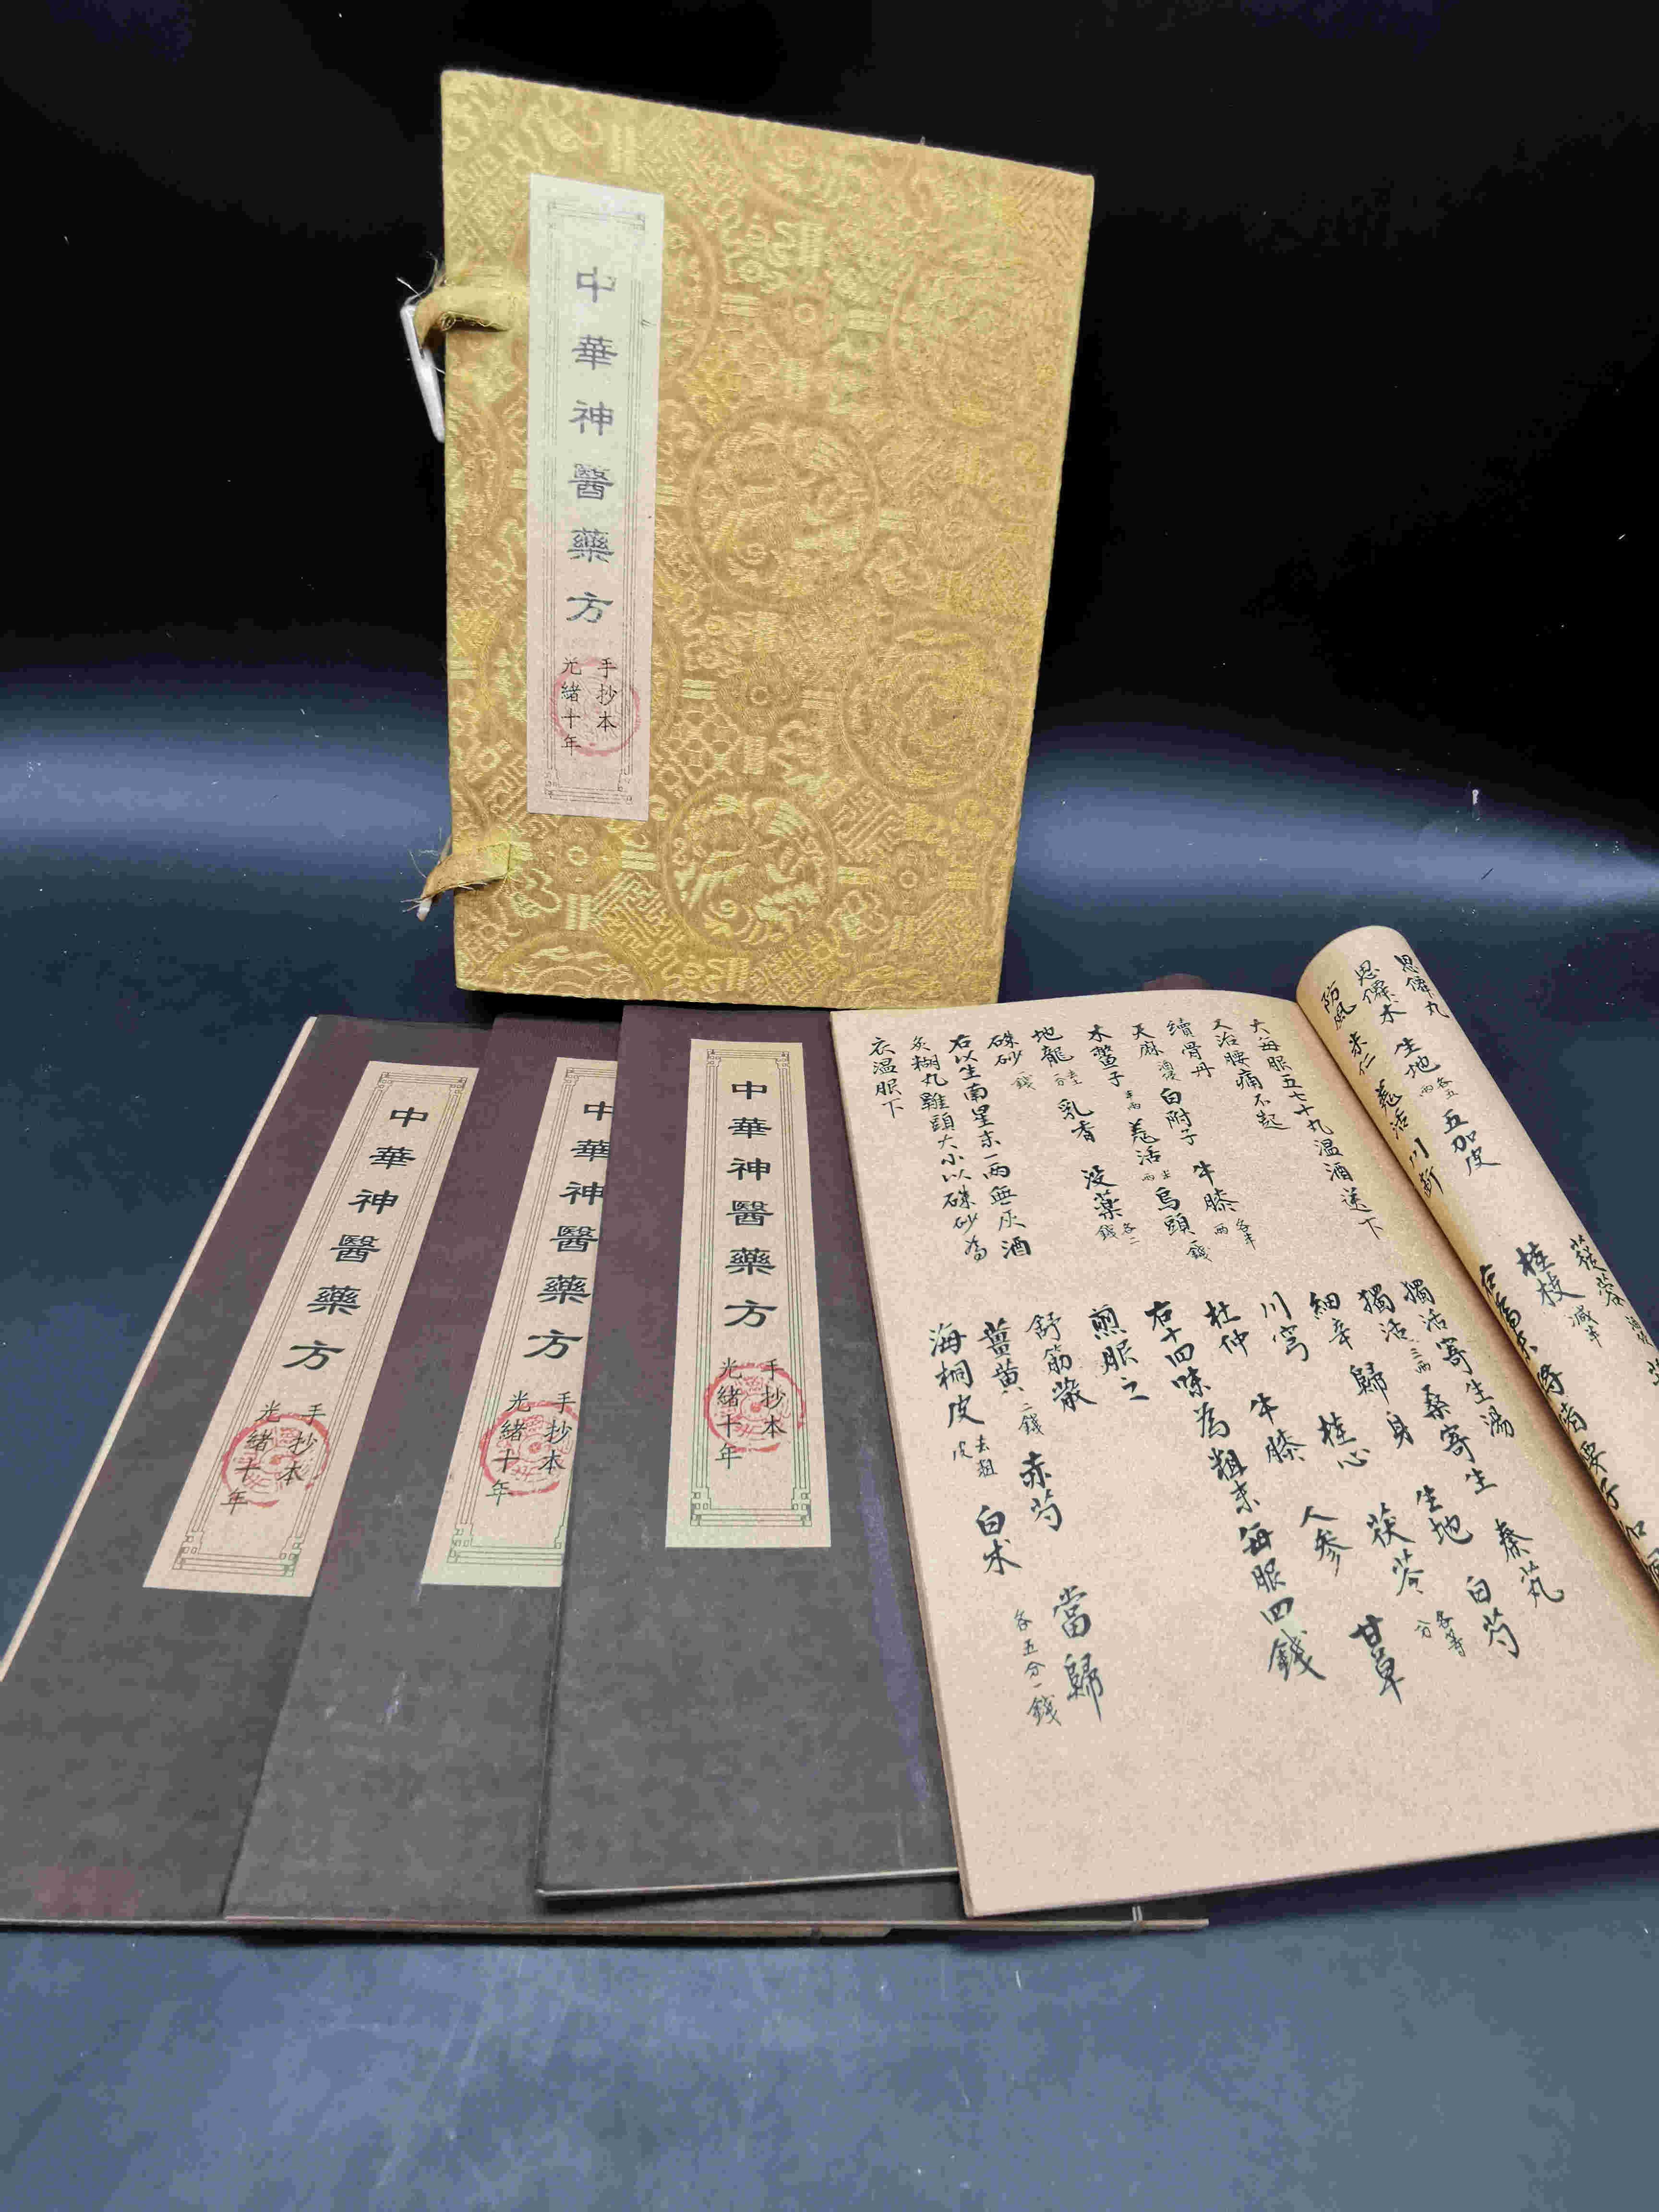 中華神醫藥方
手抄本
光緒十年
中華神醫藥方
手抄本
光緒十年
中華神醫藥方
手抄本
光緒十年
中華神醫藥方
手抄本
光緒十年
思僊丸
思僊木 生地 各五兩 五加皮
防風 米仁 羌活 川斷
蓯蓉
桂枝 減半
大每服五七十丸溫酒送下
又治腰痛不起
續骨丹
天麻 酒浸 白附子 牛膝 各半兩
木鱉子 半兩 羌活 半兩 烏頭 一錢
地龍 去土一分 乳香 沒藥 各二錢
硃砂 一錢
右以生南星末一兩無灰酒
糊丸雞頭大小以硃砂為
衣溫服下
獨活寄生湯
獨活 三兩 桑寄生 秦艽
細辛 歸身 生地 白芍
川芎 桂心 茯苓 各等分
杜仲 牛膝 人參 甘草
右十四味為粗末每服四錢
煎服之
舒筋散
薑黃 二錢 赤芍 當歸
海桐皮 去粗皮 白朮 各五分一錢